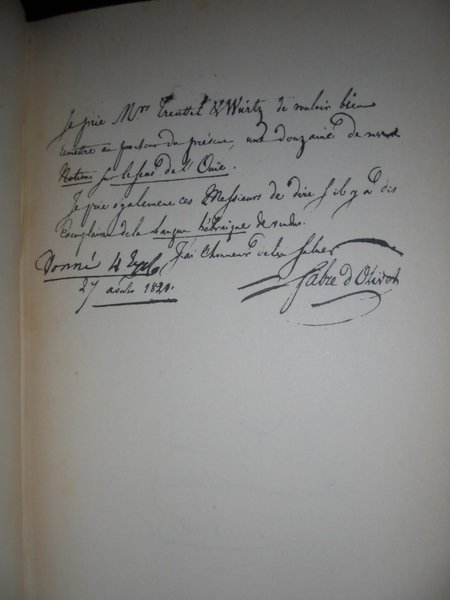 Je prie Mrs Treuttel & Würtz de vouloir bien
remettre au porteur du présent, une douzaine de mes
Notions sur le sens de l'Ouïe.
Je prie également ces Messieurs de dire s'il y a des
Exemplaires de la Langue hébraïque de vendus.
J'ai l'honneur de les saluer
Donné 4 Expl
27 août 1821.
Fabre d'Olivet